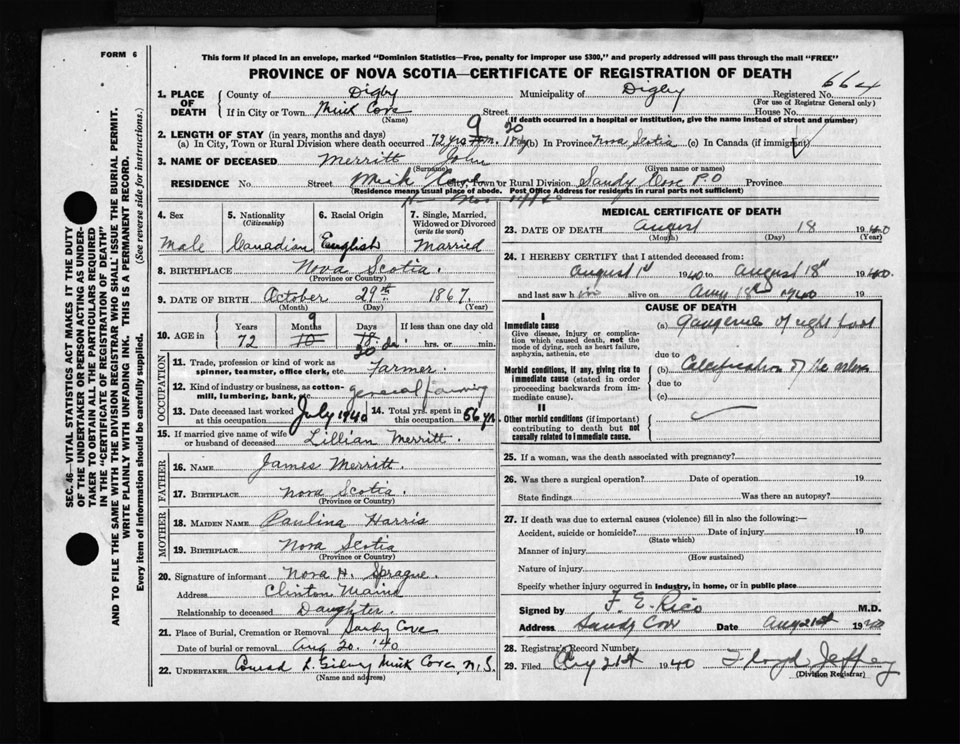 FORM 6
This form if placed in an envelope, marked "Dominion Statistics—Free, penalty for improper use $300," and properly addressed will pass through the mail "FREE"
PROVINCE OF NOVA SCOTIA—CERTIFICATE OF REGISTRATION OF DEATH
664
1. PLACE OF DEATH County of Digby Municipality of Digby Registered No.
(For use of Registrar General only)
If in City or Town Mink Cove Street House No.
(Name) (If death occurred in a hospital or institution, give the name instead of street and number)
2. LENGTH OF STAY (in years, months and days)
(a) In City, Town or Rural Division where death occurred 72 yrs 9 m. 20 (b) In Province Nova Scotia (c) In Canada (if immigrant)
3. NAME OF DECEASED Merritt John
(Surname) (Given or names)
RESIDENCE No. Street Mink Cove City, Town or Rural Division Sandy Cove P.O Province
(Residence means usual place of abode. Post Office Address for residents in rural parts not sufficient)
4. Sex 5. Nationality 6. Racial Origin 7. Single, Married, Widowed or Divorced
(Citizenship) (write the word)
Male Canadian English Married
8. BIRTHPLACE Nova Scotia.
(Province or Country)
9. DATE OF BIRTH October 29th 1867.
(Month) (Day) (Year)
10. AGE in Years Months Days If less than one day old
72 9 10 20 hrs. or min.
OCCUPATION
11. Trade, profession or kind of work as spinner, teamster, office clerk, etc. Farmer.
12. Kind of industry or business, as cotton-mill, lumbering, bank, etc. general farming
13. Date deceased last worked at this occupation July 1940 14. Total yrs. spent in this occupation 56 yrs.
15. If married give name of wife or husband of deceased Lillian Merritt.
FATHER
16. NAME James Merritt.
17. BIRTHPLACE Nova Scotia.
(Province or Country)
MOTHER
18. MAIDEN NAME Paulina Harris
19. BIRTHPLACE Nova Scotia
(Province or Country)
20. Signature of informant Nora H. Sprague.
Address Clinton Maine
Relationship to deceased Daughter.
21. Place of Burial, Cremation or Removal Sandy Cove
Date of burial or removal Aug 20. '40
22. UNDERTAKER Conrad L. Mink Cove, N.S.
(Name and address)
MEDICAL CERTIFICATE OF DEATH
23. DATE OF DEATH August 18 1940
(Month) (Day) (Year)
24. I HEREBY CERTIFY that I attended deceased from:
August 1st 1940 to August 18th 1940.
and last saw h im alive on Aug 18th 1940 19
CAUSE OF DEATH
I
Immediate cause
Give disease, injury or complication which caused death, not the mode of dying, such as heart failure, asphyxia, asthenia, etc
(a) Gangrene of right foot
due to
Morbid conditions, if any, giving rise to immediate cause (stated in order proceeding backwards from immediate cause).
(b) Calcification of the
due to
(c)
II
Other morbid conditions (if important) contributing to death but not causally related to immediate cause.
25. If a woman, was the death associated with pregnancy?
26. Was there a surgical operation? Date of operation 19
State findings Was there an autopsy?
27. If death was due to external causes (violence) fill in also the following:—
Accident, suicide or homicide? Date of injury 19
(State which)
Manner of injury
(How sustained)
Nature of injury
Specify whether injury occurred in industry, in home, or in public place
Signed by F. E. Rice M.D.
Address Sandy Cove Date Aug 21st 1940
28. Registrar's Record Number
29. Filed Aug 21st 1940 Floyd Jeffrey
(Division Registrar)
SEC. 46—VITAL STATISTICS ACT MAKES IT THE DUTY
OF THE UNDERTAKER OR PERSON ACTING AS UNDER-
TAKER TO OBTAIN ALL THE PARTICULARS REQUIRED
IN THE "CERTIFICATE OF REGISTRATION OF DEATH"
AND TO FILE THE SAME WITH THE DIVISION REGISTRAR WHO SHALL ISSUE THE BURIAL PERMIT.
WRITE PLAINLY WITH UNFADING INK. THIS IS A PERMANENT RECORD.
Every item of information should be carefully supplied. (See reverse side for instructions.)